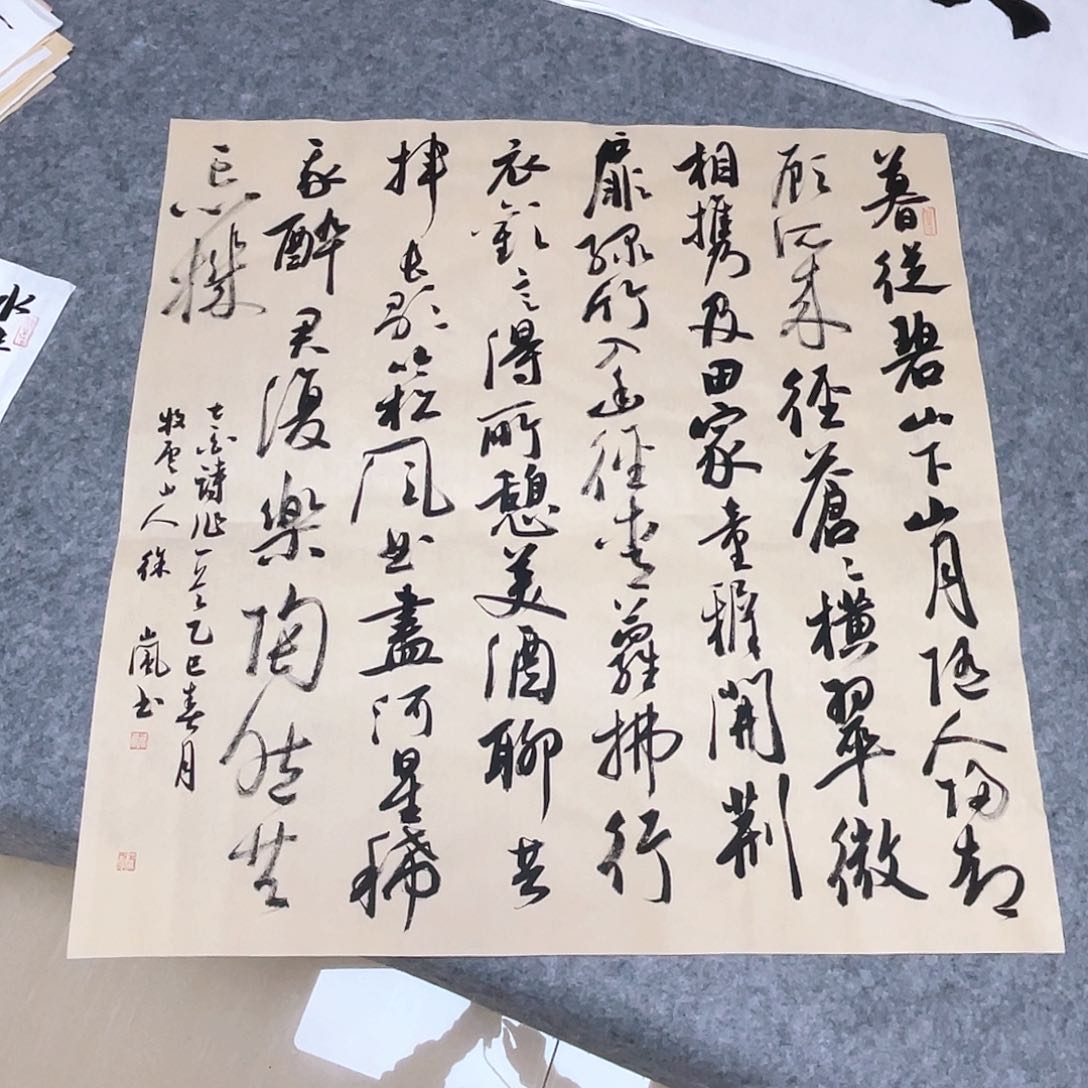 暮從碧山下山月隨人歸却
顧所來徑蒼〻橫翠微
相攜及田家童稚開荊
扉綠竹入幽徑青蘿拂行
衣歡言得所憩美酒聊共
揮長歌吟松風曲盡河星稀
我醉君復樂陶然共
忘機
太白詩一首乙巳春月
牧雲山人徐嵐書
水